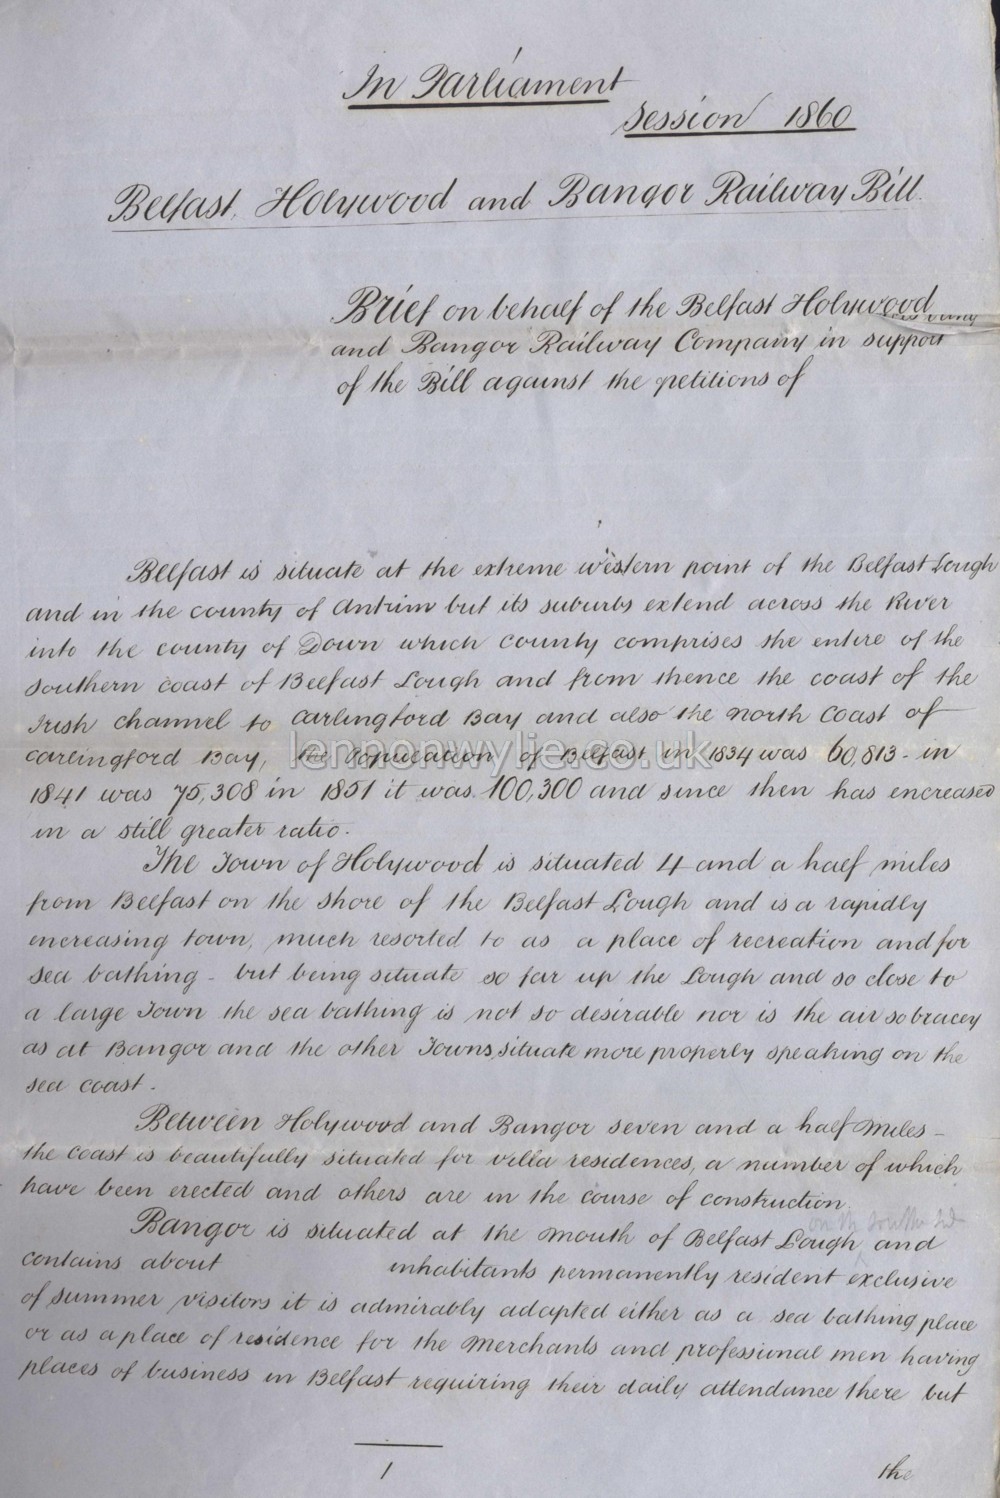 In Parliament
Session 1860
Belfast, Holywood and Bangor Railway Bill.
Brief on behalf of the Belfast Holywood
and Bangor Railway Company in support
of the Bill against the petitions of
Belfast is situate at the extreme western point of the Belfast Lough
and in the county of Antrim but its suburbs extend across the River
into the county of Down which county comprises the entire of the
southern coast of Belfast Lough and from thence the coast of the
Irish Channel to Carlingford Bay and also the North Coast of
Carlingford Bay, the Population of Belfast in 1834 was 60,813 - in
1841 was 75,308 in 1851 it was 100,300 and since then has encreased
in a still greater ratio.
The Town of Holywood is situated 4 and a half miles
from Belfast on the shore of the Belfast Lough and is a rapidly
increasing town, much resorted to as a place of recreation and for
sea bathing - but being situate so far up the Lough and so close to
a large Town the sea bathing is not so desirable nor is the air so bracey
as at Bangor and the other Towns situate more properly speaking on the
sea coast -
Between Holywood and Bangor seven and a half Miles -
the coast is beautifully situated for villa residences, a number of which
have been erected and others are in the course of construction,
on the South Side
Bangor is situated at the mouth of Belfast Lough and
contains about inhabitants permanently resident exclusive
of summer visitors it is admirably adapted either as a sea bathing place
or as a place of residence for the Merchants and professional men having
places of business in Belfast requiring their daily attendance there but
1
the
lennonwylie.co.uk